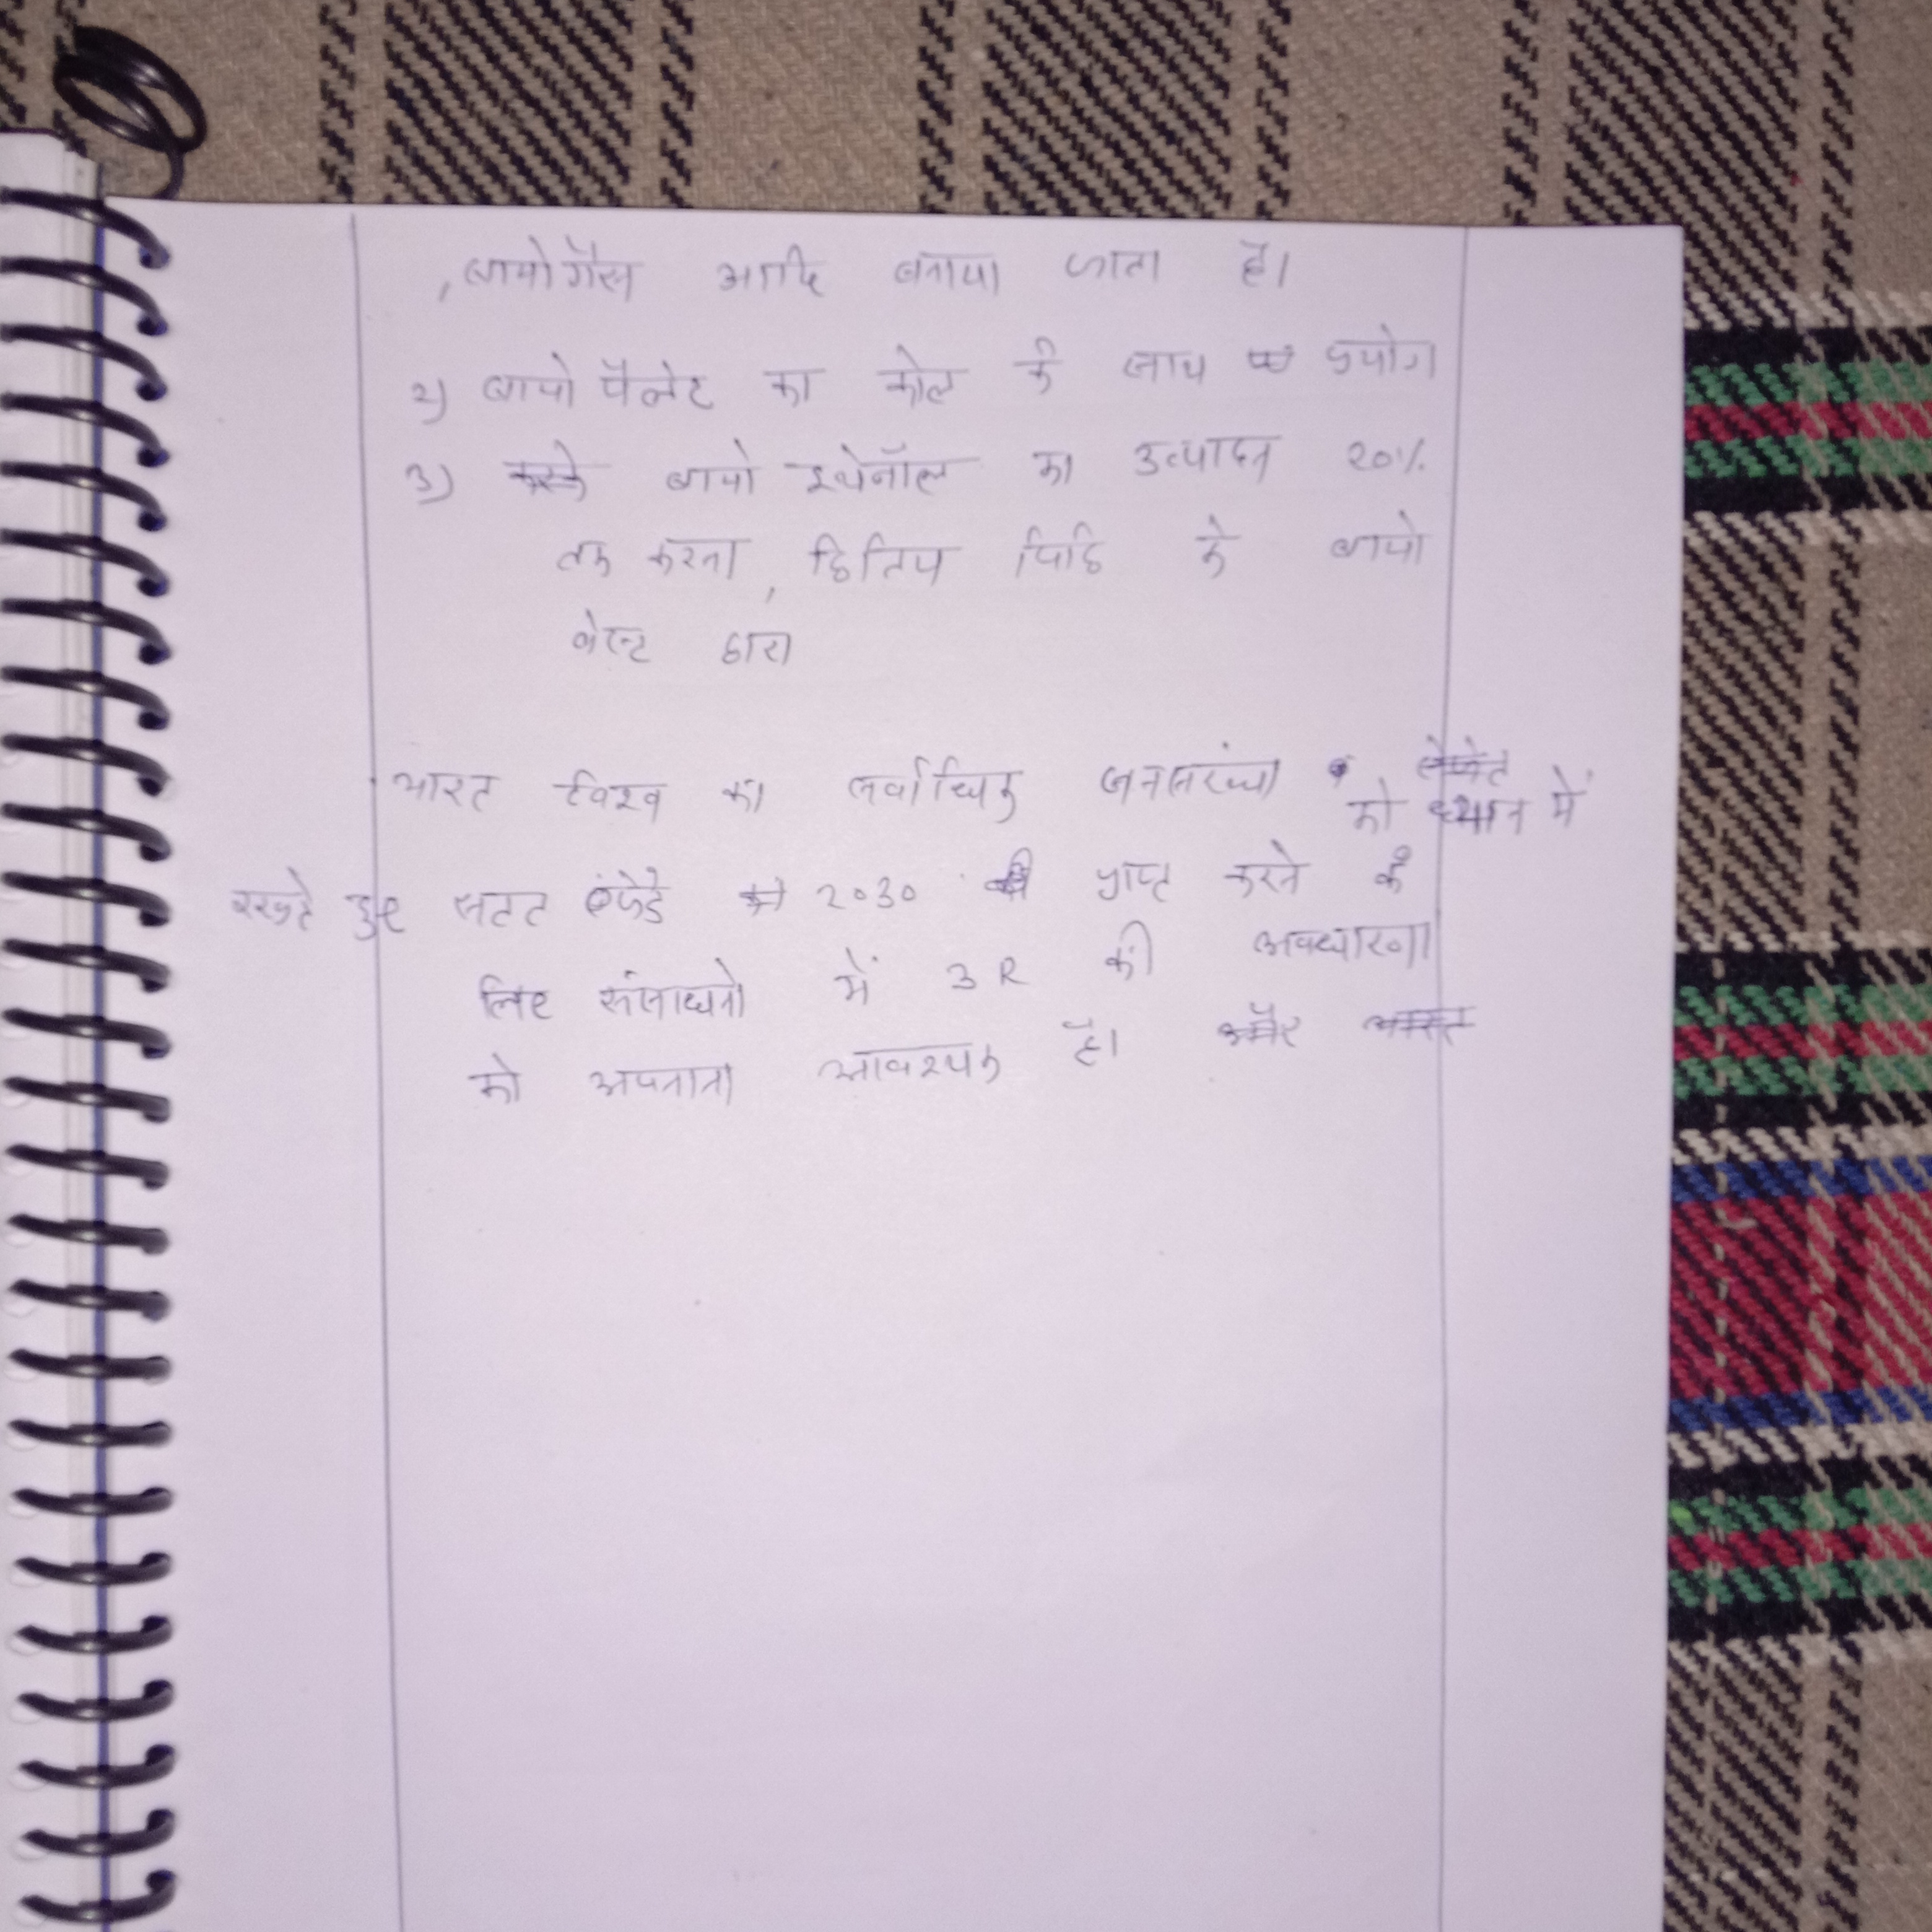 , बायोगैस आदि बनाया जाता है।
2) बायो पैलेट का कोल के साथ प्रयोग
3) बायो इथेनॉल का उत्पादन 20%
तक करना, द्वितिय पिढि के बायो
वेस्ट द्वारा
भारत विश्व का सर्वाधिक जनसंख्या को ध्यान में
रखते हुए सतत एजेंडे 2030 प्राप्त करने के
लिए संसाधनो में 3R की अवधारणा
को अपनाना आवश्यक है।